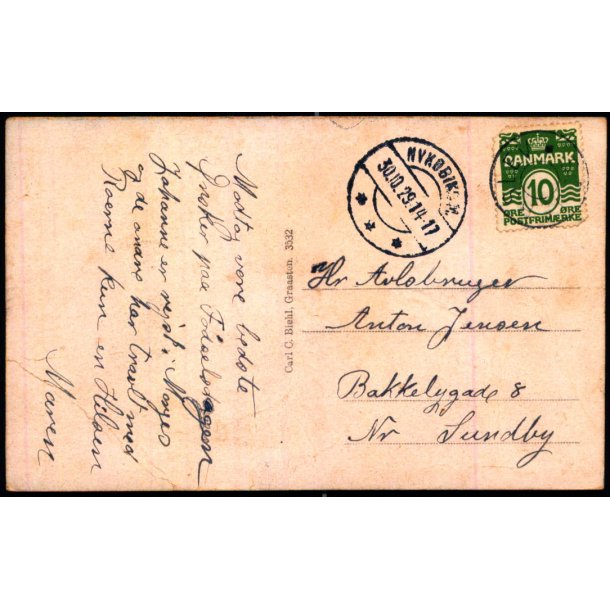 Modtag vore bedste
Ønsker paa Fødselsdagen
Johanne er rejst i Morges
og de andre har travlt med
Roerne kun en Hilsen
Maren
Carl C. Biehl, Graasten. 3532
NYKØBING M.
30.10.29.14-17
DANMARK
10
ØRE ØRE
POSTFRIMÆRKE
Hr Avlsbruger
Anton Jensen
Bakkelygade 8
Nr Sundby